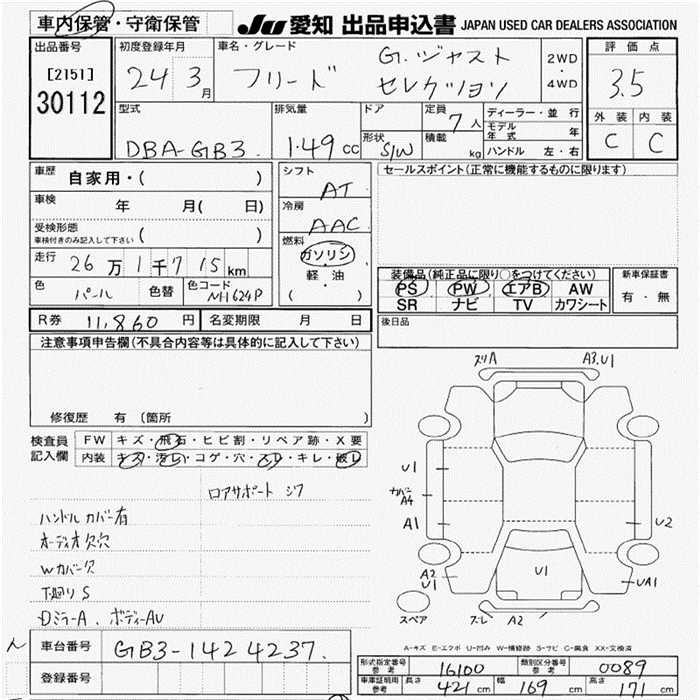 車内保管・守衛保管 JU 愛知 出品申込書 JAPAN USED CAR DEALERS ASSOCIATION
出品番号 初度登録年月 車名・グレード 評価点
[2151] 30112
24年3月 フリード G.ジャスト セレクション 2WD・4WD 3.5
型式 排気量 ドア 定員 7人 ディーラー・並行 外装 内装
DBA-GB3. 1.49cc 形状 S/W 積載 kg モデル年式 年 C C
ハンドル 左・右
車歴 自家用・( ) シフト AT セールスポイント(正常に機能するものに限ります)
車検 年 月( 日) 冷房 AAC
受検形態 車検付きのみ記入して下さい ( )
走行 26万1千715km 燃料 ガソリン 軽油 ( ・ )
装備品(純正品に限り○をつけてください) 新車保証書
PS PW エアB AW 有・無
SR ナビ TV カワシート
色 パール 色替 色コード NH624P
R券 11,860円 名変期限 月 日 後日品
注意事項申告欄(不具合内容等は具体的に記入して下さい)
修復歴 有 (箇所 )
検査員記入欄 FW キズ・飛石・ヒビ割・リペア跡・X要
内装 キズ・汚レ・コゲ・穴・スレ・キレ・破レ
ロアサポート シワ
ハンドルカバー有
オーディオ欠穴
Wカバー欠
下廻り S
Dミラー A. ボディーAU
ズリA A3.U1
U1
カバーA4
A1
U2
A2 U1
U1
UA1
スペア ズレ A2
A-キズ E-エクボ U-凹み W-補修跡 S-サビ C-腐食 XX-交換済
車台番号 GB3-1424237.
登録番号
形式指定番号 参考 16100 類別区分番号 参考 0089
車庫証明用 参考 長さ 421cm 幅 169cm 高さ 171cm